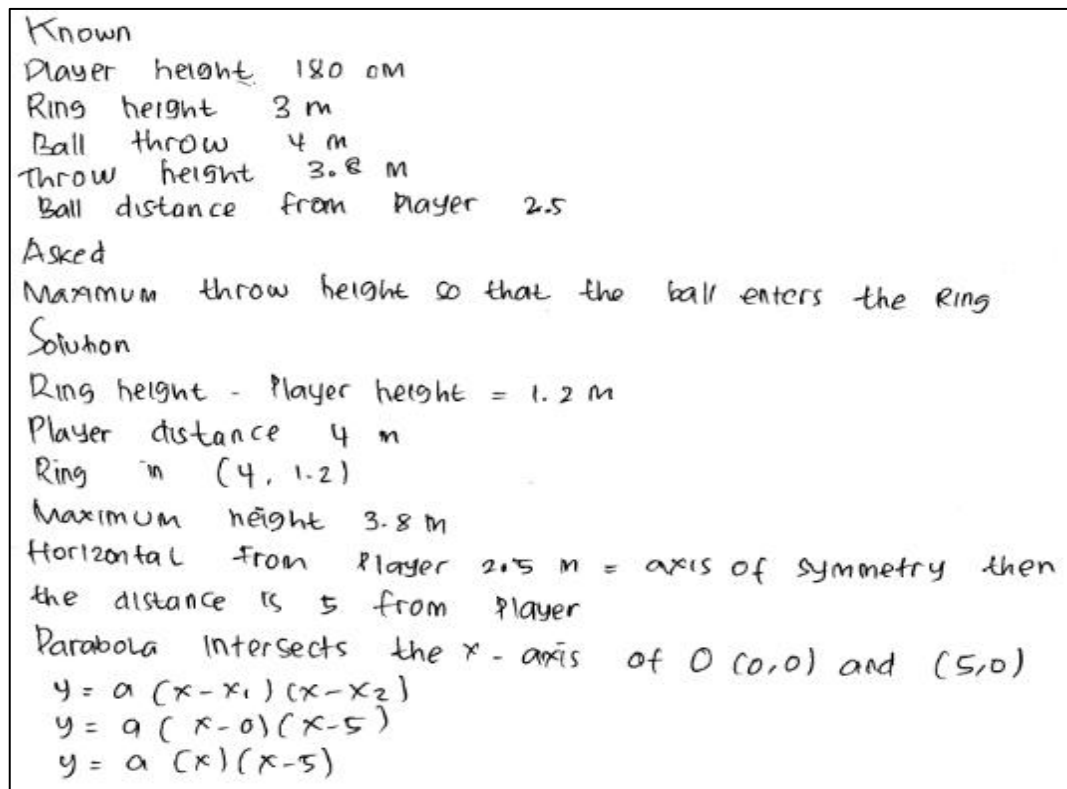 Known
Player height 180 cm
Ring height 3 m
Ball throw 4 m
Throw height 3.8 m
Ball distance from Player 2.5
Asked
Maximum throw height so that the ball enters the Ring
Solution
Ring height - Player height = 1.2 m
Player distance 4 m
Ring in (4, 1.2)
Maximum height 3.8 m
Horizontal From Player 2.5 m = axis of symmetry then
the distance is 5 from Player
Parabola Intersects the x-axis of O (0,0) and (5,0)
y = a (x-x₁)(x-x₂)
y = a (x-0)(x-5)
y = a (x)(x-5)